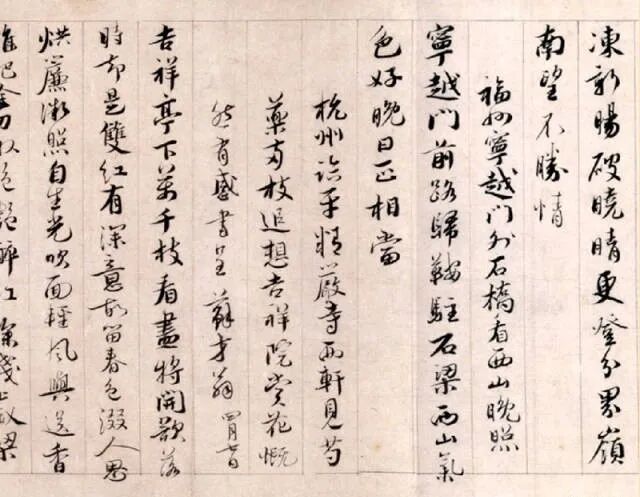 凍新暘破曉晴更登分界嶺
南望不勝情
福州寧越門外石橋看西山晚照
寧越門前路歸鞍駐石梁西山氣
色好晚日正相當
杭州臨平精嚴寺西軒見芍
藥兩枝追想吉祥院賞花慨
然有感書呈蘇才翁 四月七日
吉祥亭下萬千枝看盡將開欲落
時却是雙紅有深意故留春色綴人思
烘簾微照自生光吹面輕風與送香
誰把金刀收絕艷醉紅深淺上釵梁